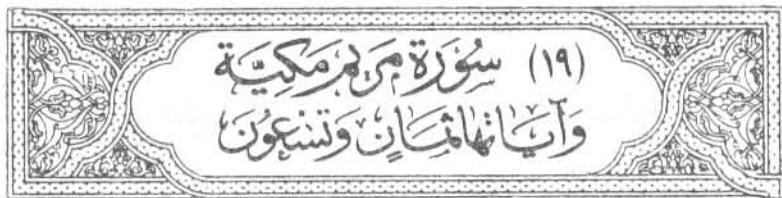 (١٩) سُورَة مَريَم مَكيَّة
وَآيَاتهَا ثمَانٍ وَتِسْعُونَ